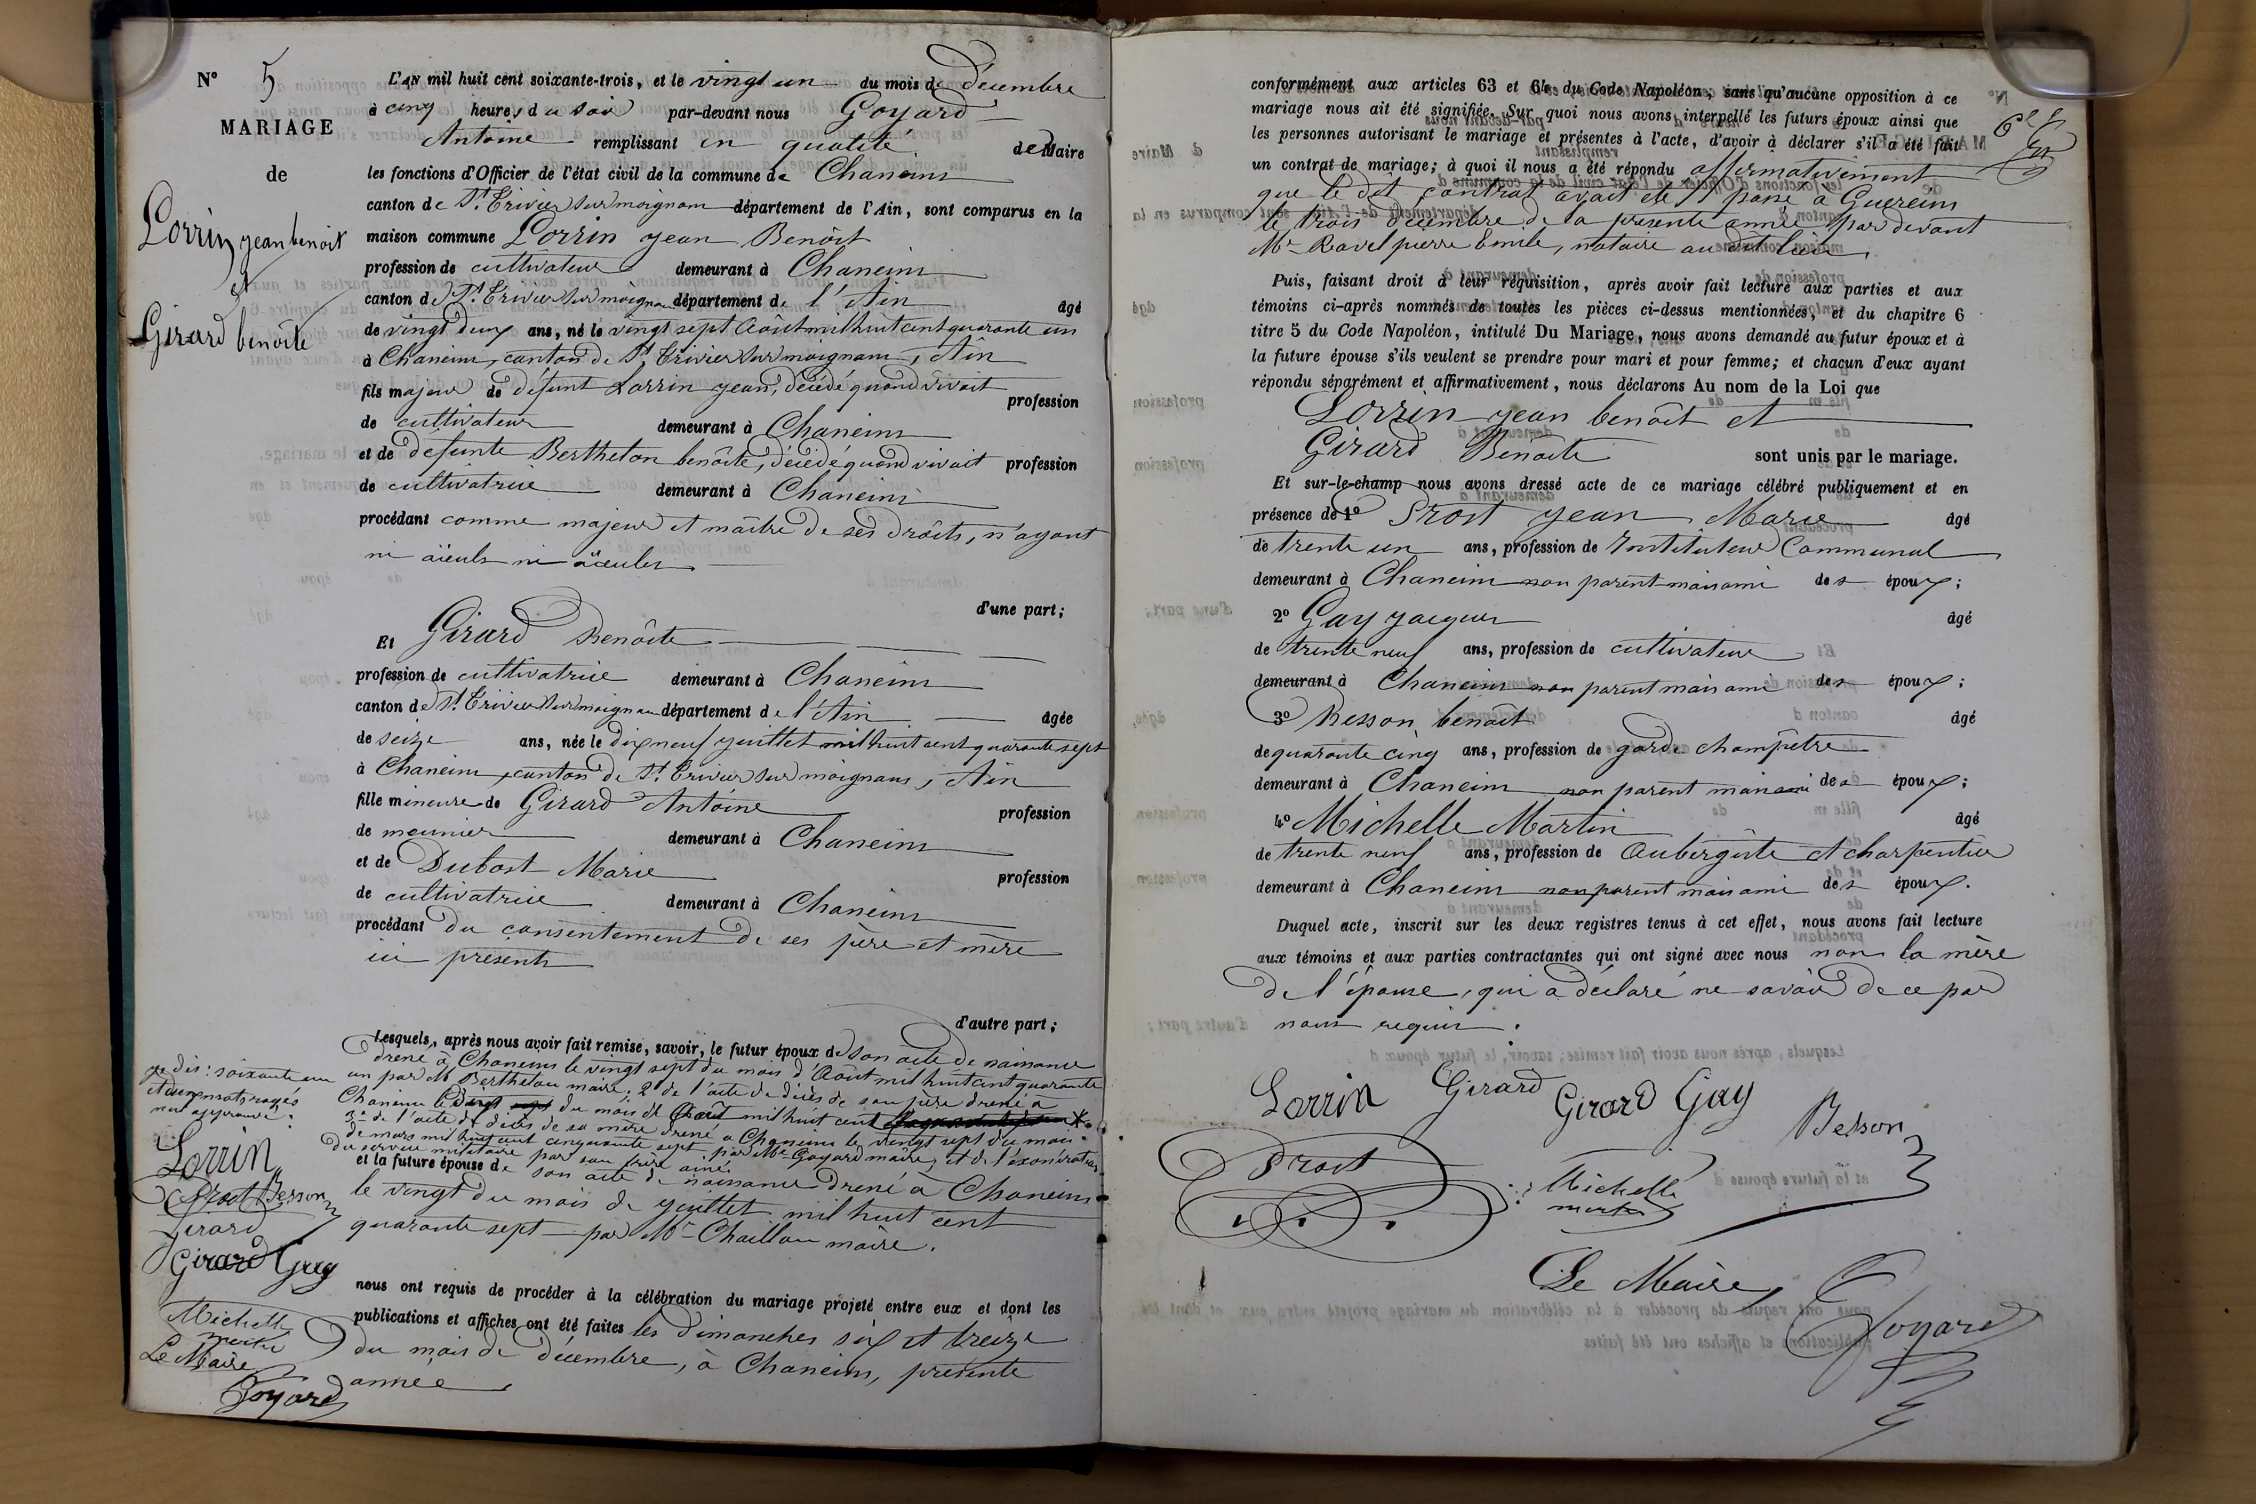 N° 5
MARIAGE
de
Lorrin jean benoit
et
Girard benoîte
L'AN mil huit cent soixante-trois, et le vingt un du mois de décembre
à cinq heures du soir par-devant nous Goyard
Antoine remplissant en qualité de Maire
les fonctions d'Officier de l'état civil de la commune de Chaneins
canton de St Trivier sur moignans département de l'Ain, sont comparus en la
maison commune Lorrin jean Benoît
profession de cultivateur demeurant à Chaneins
canton de St Trivier sur moignans département de l'Ain âgé
de vingt deux ans, né le vingt sept Août mil huit cent quarante un
à Chaneins, canton de St Trivier sur moignans, Ain
fils majeur de défunt Lorrin jean, décédé quand vivait profession
de cultivateur demeurant à Chaneins
et de défunte Berthelon benoîte, décédé quand vivait profession
de cultivatrice demeurant à Chaneins
procédant comme majeur et maître de ses droits, n'ayant
ni aïeuls ni aïeules
d'une part;
Et Girard Benoîte
profession de cultivatrice demeurant à Chaneins
canton de St Trivier sur moignans département de l'Ain âgée
de seize ans, née le dix neuf juillet mil huit cent quarante sept
à Chaneins, canton de St Trivier sur moignans, Ain
fille mineure de Girard Antoine profession
de meunier demeurant à Chaneins
et de Dubost Marie profession
de cultivatrice demeurant à Chaneins
procédant du consentement de ses père et mère
ici présents
d'autre part;
Lesquels, après nous avoir fait remise, savoir, le futur époux de son acte de naissance
drené à Chaneins le vingt sept du mois d'Août mil huit cent quarante
un par Mr Berthelon maire; 2° de l'acte de décès de son père drené à
Chaneins le du mois de mil huit cent *
3° de l'acte de décès de sa mère drené à Chaneins le vingt sept du mois
de mars mil huit cent cinquante sept par Mr Goyard maire, et de l'exonération
du service militaire par son frère ainé.
et la future épouse de son acte de naissance drené à Chaneins
le vingt du mois de juillet mil huit cent
quarante sept par Mr Chaillou maire.
nous ont requis de procéder à la célébration du mariage projeté entre eux et dont les
publications et affiches ont été faites les dimanches six et treize
du mois de décembre, à Chaneins, présente
année.
dis: soixante un
et mots rayés
approuvé.
Lorrin
Prost Besson
Girard
Girard Gay
Michelle
martin
Le Maire
Goyard
conformément aux articles 63 et 64 du Code Napoléon, sans qu'aucune opposition à ce
mariage nous ait été signifiée. Sur quoi nous avons interpellé les futurs époux ainsi que
les personnes autorisant le mariage et présentes à l'acte, d'avoir à déclarer s'il a été fait
un contrat de mariage; à quoi il nous a été répondu affirmativement
que le dit contrat avait été passé à Guereins
le trois décembre de la présente année par devant
Mr Ravel pierre Emile, notaire au dit lieu.
Puis, faisant droit à leur réquisition, après avoir fait lecture aux parties et aux
témoins ci-après nommés de toutes les pièces ci-dessus mentionnées, et du chapitre 6
titre 5 du Code Napoléon, intitulé Du Mariage, nous avons demandé au futur époux et à
la future épouse s'ils veulent se prendre pour mari et pour femme; et chacun d'eux ayant
répondu séparément et affirmativement, nous déclarons Au nom de la Loi que
Lorrin jean benoît et
Girard Benoîte sont unis par le mariage.
Et sur-le-champ nous avons dressé acte de ce mariage célébré publiquement et en
présence de 1° Prost jean Marie âgé
de trente un ans, profession de Instituteur Communal
demeurant à Chaneins non parent mais ami des époux;
2° Gay jacques âgé
de trente neuf ans, profession de cultivateur
demeurant à Chaneins non parent mais ami des époux;
3° Besson benoît âgé
de quarante cinq ans, profession de garde champêtre
demeurant à Chaneins non parent mais ami des époux;
4° Michelle Martin âgé
de trente neuf ans, profession de Aubergiste et charpentier
demeurant à Chaneins non parent mais ami des époux.
Duquel acte, inscrit sur les deux registres tenus à cet effet, nous avons fait lecture
aux témoins et aux parties contractantes qui ont signé avec nous non la mère
de l'épouse, qui a déclaré ne savoir de ce par
nous requis.
Lorrin Girard Girard Gay
Besson
Prost
Michelle
martin
Le Maire,
Goyard